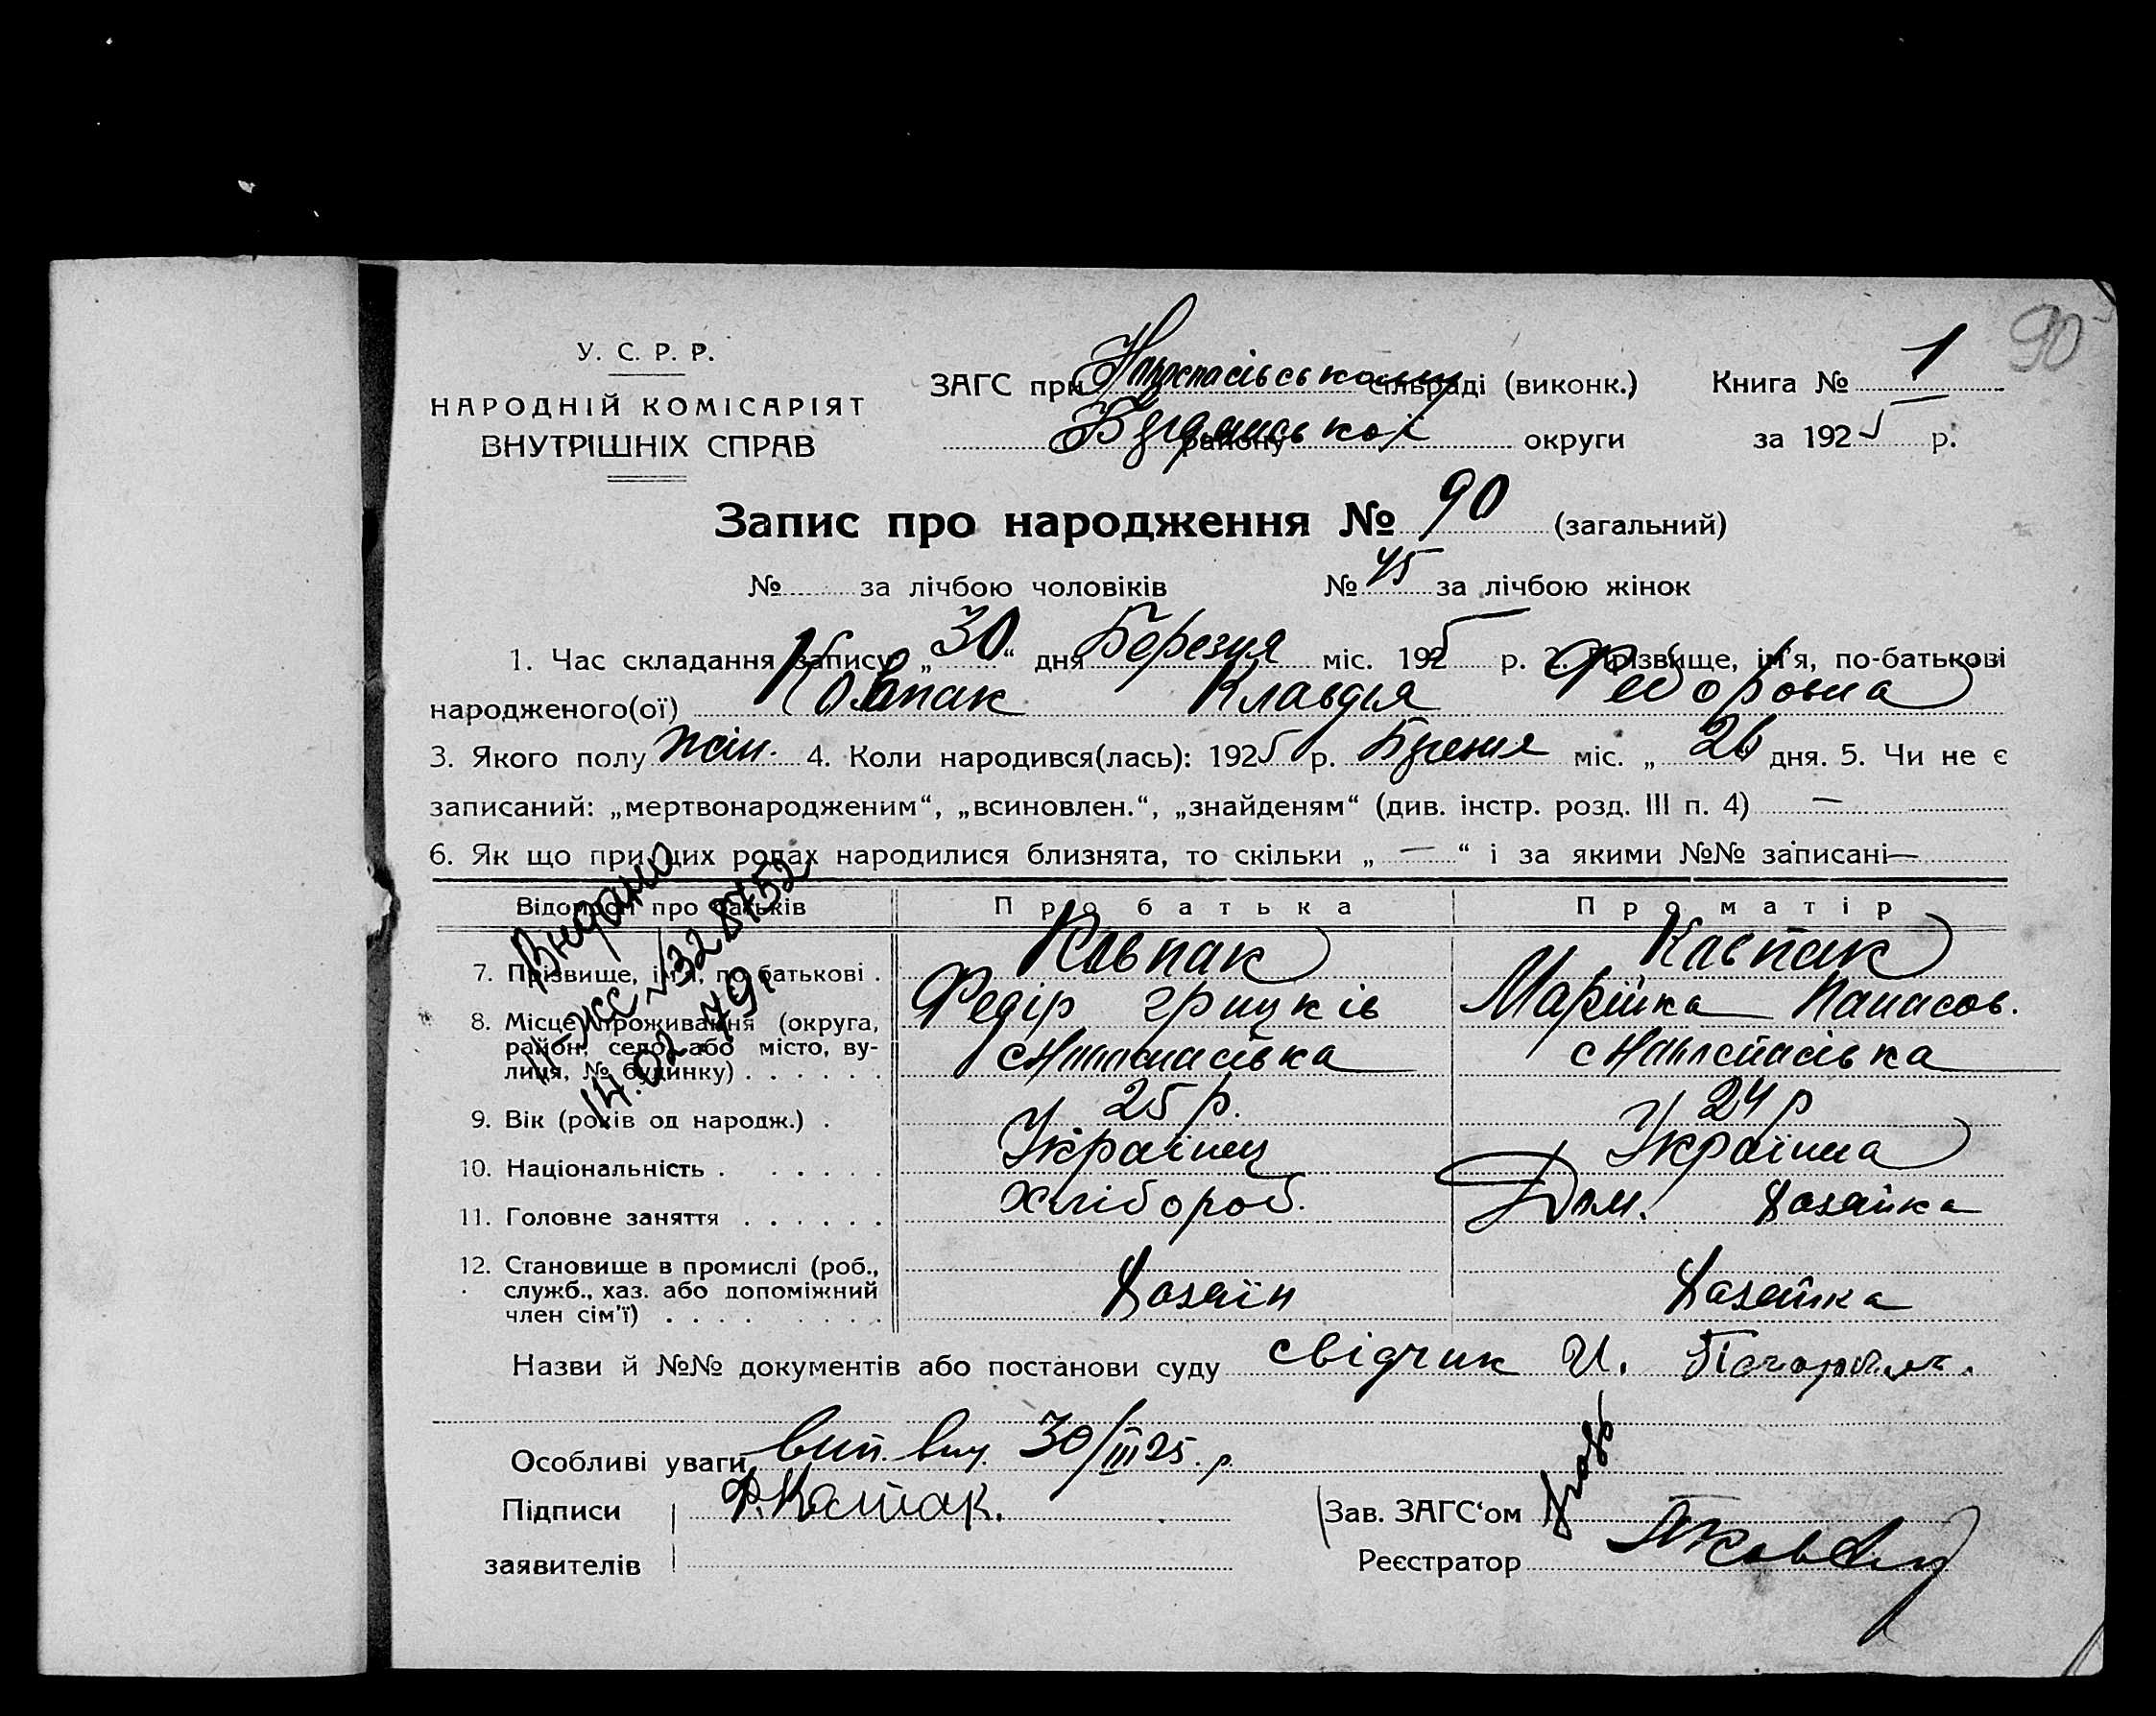 90
У. С. Р. Р.
НАРОДНІЙ КОМІСАРІЯТ
ВНУТРІШНІХ СПРАВ
ЗАГС при сільраді (виконк.) Книга № 1
району округи за 1925 р.
Запис про народження № 90 (загальний)
№ за лічбою чоловіків № 45 за лічбою жінок
1. Час складання запису: „30“ дня Березня міс. 1925 р. 2. Прізвище, ім'я, по-батькові
народженого(ої) Ковпак Клавдія Федоровна
3. Якого полу жін. 4. Коли народився(лась): 1925 р. міс. „ 26 дня. 5. Чи не є
записаний: „мертвонародженим“, „всиновлен.“, „знайденям“ (див. інстр. розд. III п. 4) —
6. Як що при цих родах народилися близнята, то скільки „ — “ і за якими №№ записані —
Відомості про батьків Про батька Про матір
7. Прізвище, ім'я, по батькові . Ковпак Ковпак
Федір Грицків Марійка Панасов.
8. Місце проживання (округа,
район, село або місто, ву-
лиця, № будинку) . . . . . .
9. Вік (років од народж.) . 25 р. 24 р
10. Національність . . . . . Українец Українка
11. Головне заняття . . . . . . Хлібороб. Дом. Хазайка
12. Становище в промислі (роб.,
служб., хаз. або допоміжний
член сім'ї) . . . . . . . . Хазаїн Хазайка
Видано
14.02.79г
Назви й №№ документів або постанови суду свідчик И.
Особливі уваги вип. вид. 30/III 25. р.
Підписи Ф. Ковпак.
заявителів
Зав. ЗАГС‘ом
Реєстратор